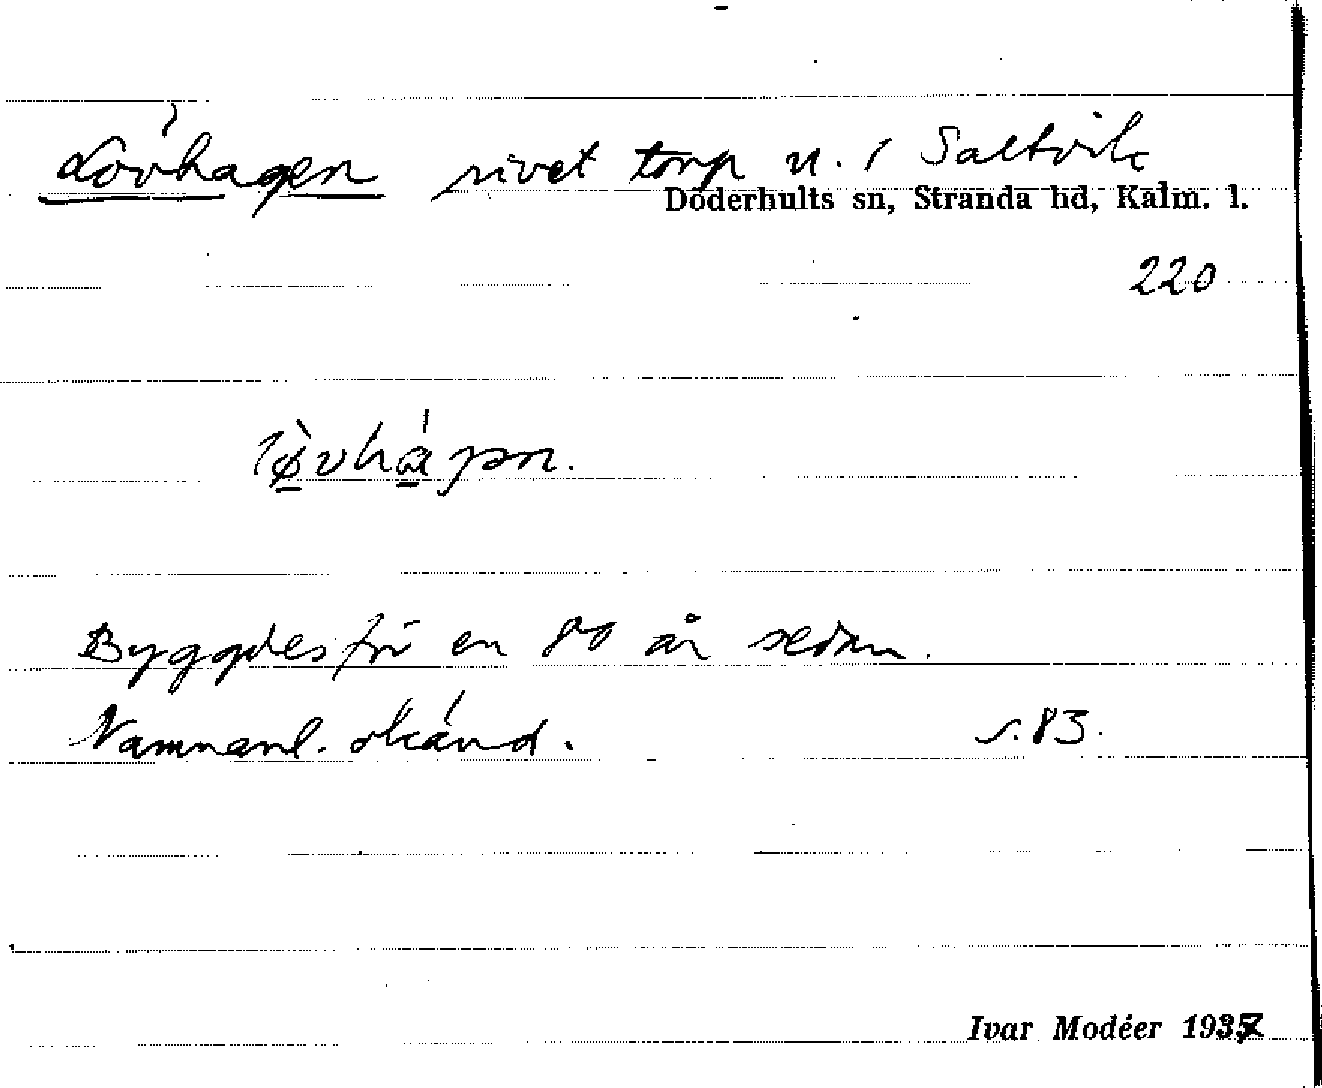 Lövhagen rivet torp u. / Saltvik
Döderhults sn, Stranda hd, Kalm. l.
220
Byggdes för en 80 år sedan.
Namnanl. okänd. s. 83.
Ivar Modéer 1937